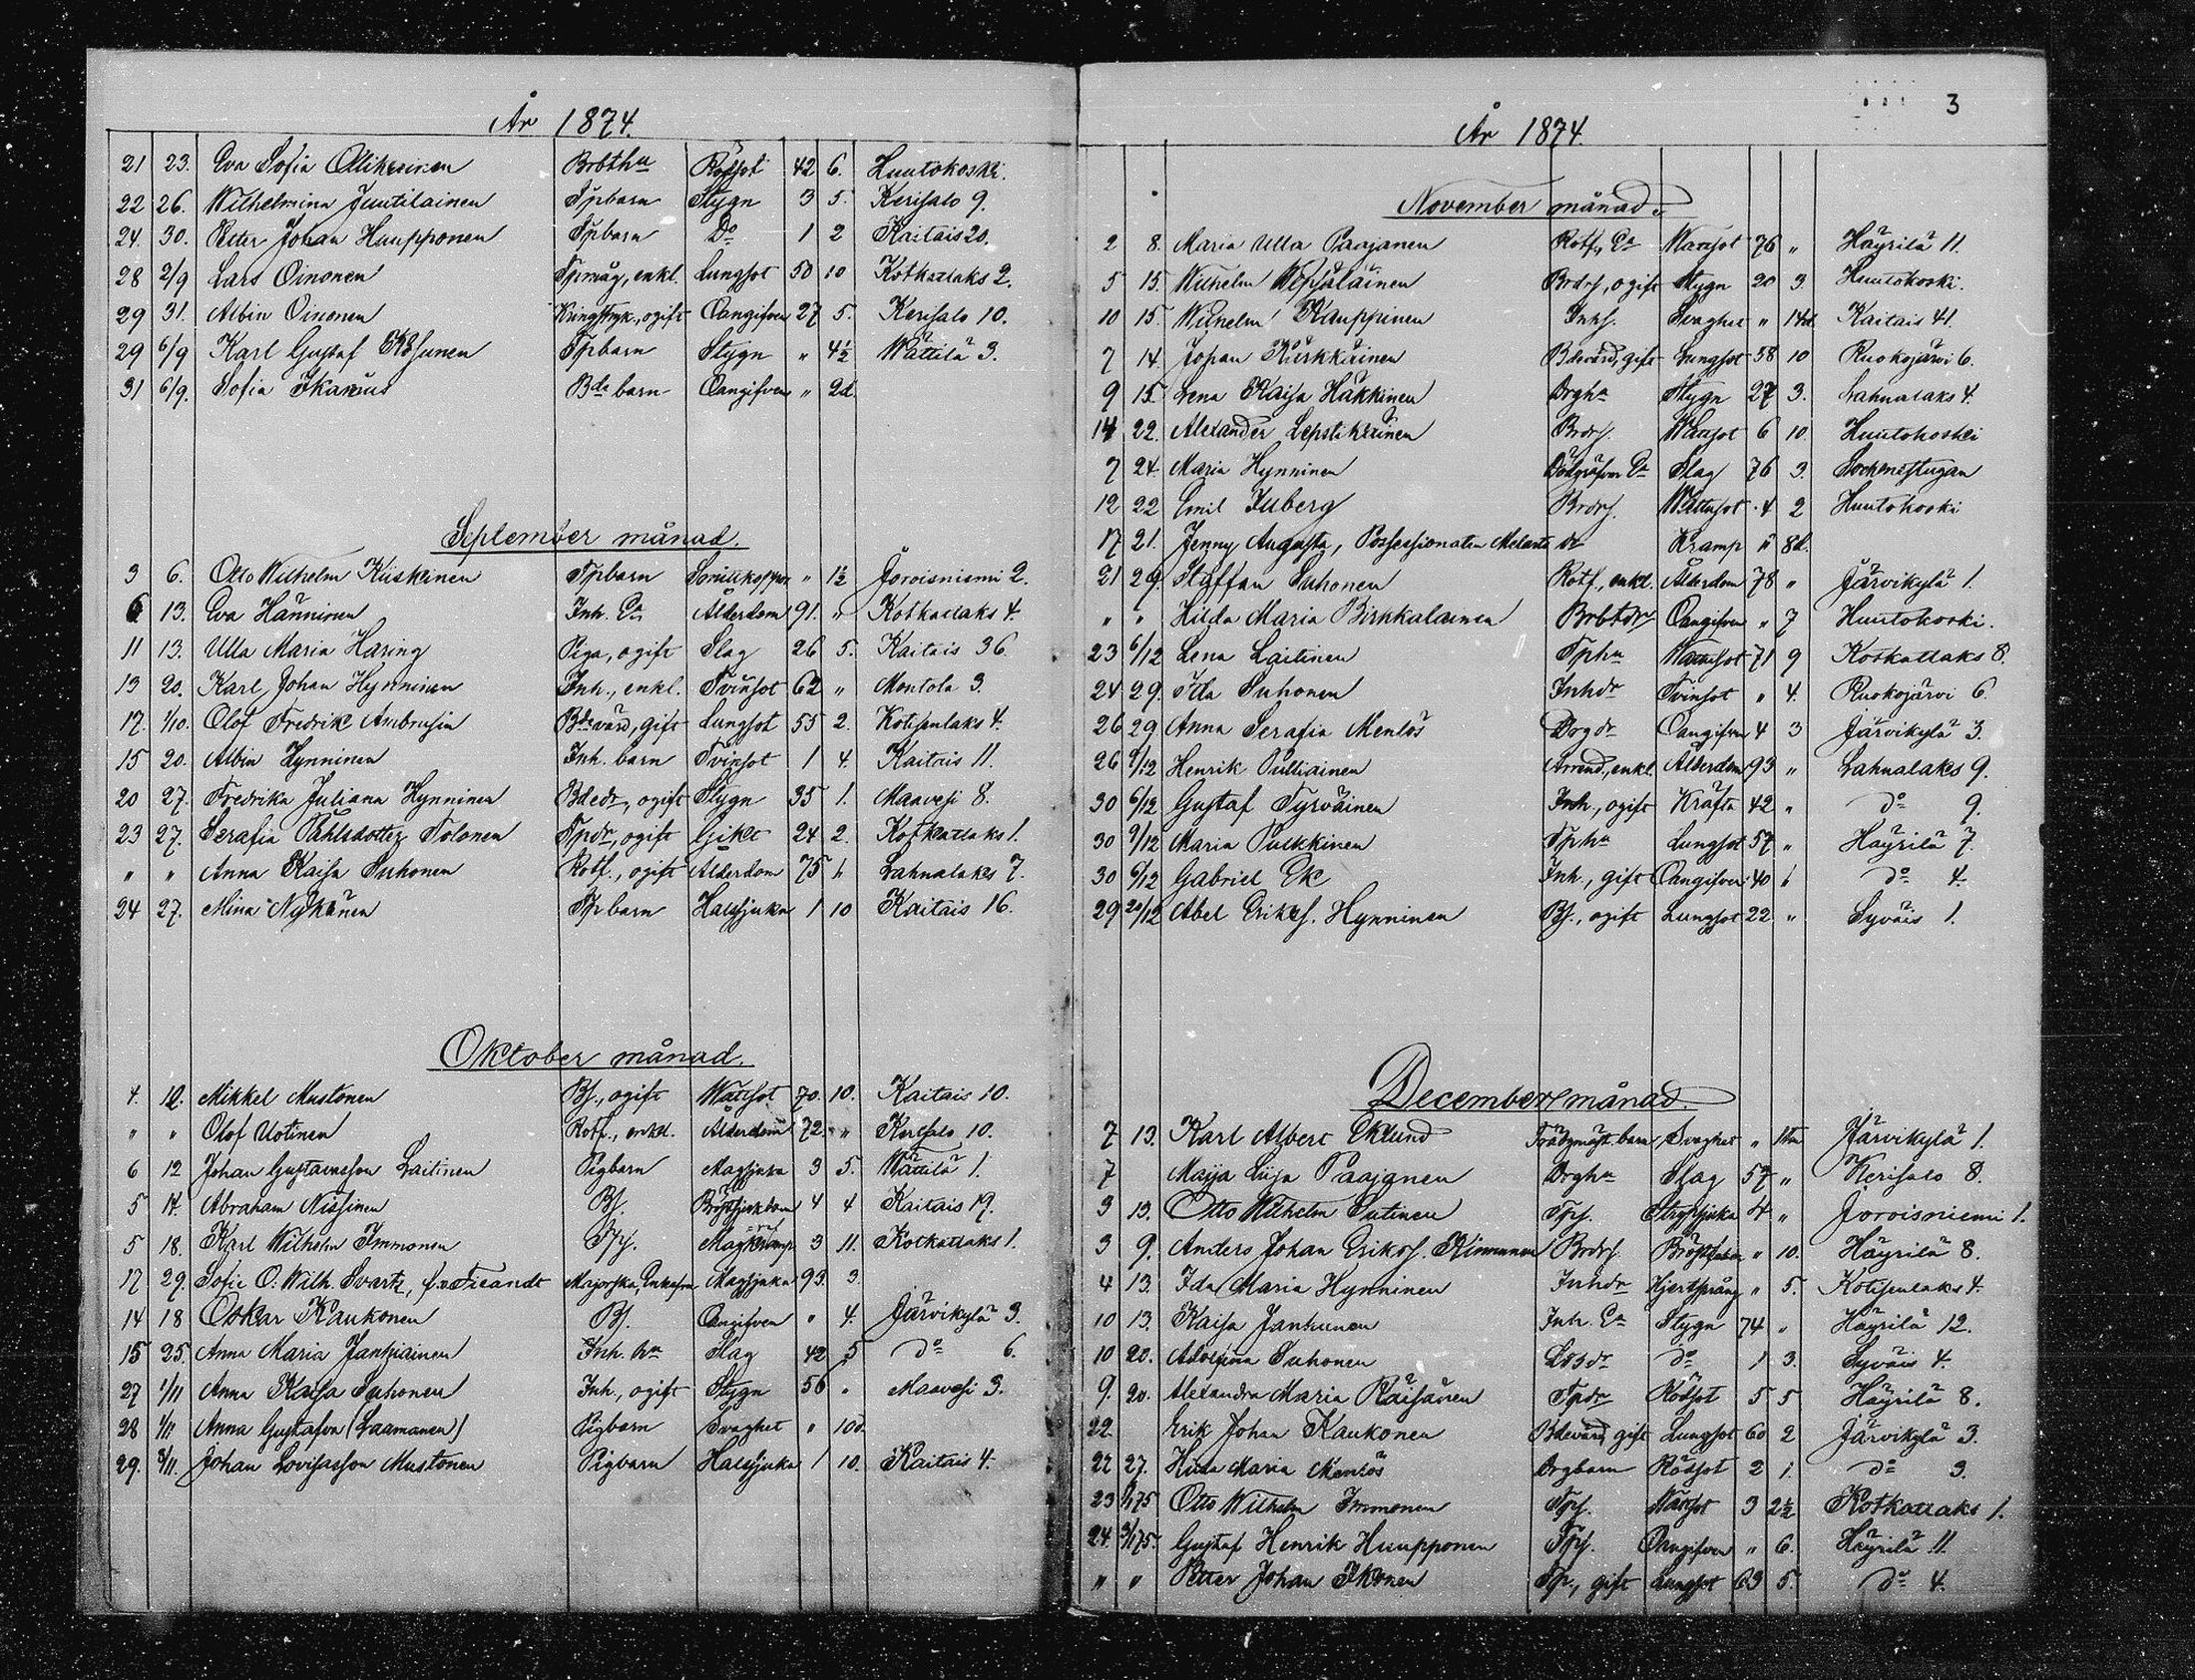 År 1874.
21 23. Eva Sofia Olikainen Brbthu Rödsot 42 6. Huutokoski.
22 26. Wilhelmina Juutilainen Tpbarn Stygn 3 5. Kerisalo 9.
24. 30. Petter Johan Huupponen Tpbarn Do 1 2 Kaitais 20.
28 2/9 Lars Oinonen Tpmåg, enkl. Lungsot 50 10 Kotkatlaks 2.
29 31. Albin Oinonen ogift Oangifven 27 5. Kerisalo 10.
29 6/9 Karl Gustaf Tpbarn Stygn " 4½ Wättilä 3.
31 6/9. Sofia Ikanius Bde barn Oangifven " 2d.
September månad.
3 6. Otto Wilhelm Kiiskinen Tpbarn " 1½ Joroisniemi 2.
6 13. Eva Hänninen Inh. Ea Ålderdom 91. " Kotkatlaks 4.
11 13. Ulla Maria Häring Piga, ogift Slag 26 5. Kaitais 36.
13 20. Karl Johan Hynninen Inh., enkl. Tvinsot 62 " Montola 3.
17. 1/10. Olof Fredrik Ambrusin Bdevärd, gift Lungsot 55 2. Kotisenlaks 4.
15 20. Albin Hynninen Inh. barn Tvinsot 1 4. Kaitais 11.
20 27. Fredrika Juliana Hynninen Bdedr, ogift Stygn 35 1. Maavesi 8.
23 27. Serafia Påhlsdotter Tolonen Tpdr, ogift Gikt 24 2. Kotkatlaks 1.
" " Anna Kaisa Suhonen Rotf., ogift Ålderdom 75 " Lahnalaks 7.
24 27. Mina Nykänen Tpbarn Halssjuka 1 10 Kaitais 16.
Oktober månad.
4. 12. Mikkel Mustonen Bf., ogift Wattsot 70. 10. Kaitais 10.
" " Olof Uotinen Rotf., enkl. Ålderdom 72. " Kerisalo 10.
6 12 Johan Gustavasson Laitinen Pigbarn Magsjuka 3 5. Wättilä 1.
5 14. Abraham Nissinen Bf. Bröstsjukdom 4 4 Kaitais 19.
5 18. Karl Wilhelm Immonen Tpf. Magkramp 3 11. Kotkatlaks 1.
17 29. Sofie O. Wilh. Svartz, f. v. Fieandt Majorska, Enkefru Magsjuka 93. 3.
14 18 Oskar Kaukonen Bf. Oangifven " 4. Järvikylä 3.
15 25. Anna Maria Jantiainen Inh. hu Slag 42 5 do 6.
27 1/11 Anna Kaisa Suhonen Inh., ogift Stygn 56 " Maavesi 3.
28 1/11 Anna Gustafva (Laamanen) Pigbarn Svaghet " 10d.
29. 8/11. Johan Lovisasson Mustonen Pigbarn Halssjuka 1 10. Kaitais 4.
3
År 1874.
November månad.
2 8. Maria Ulla Paajanen Rotf, Ea Wattsot 76 " Häyrilä 11.
5 15. Wilhelm Wepsäläinen Brdrs, ogift Stygn 20 3. Huutokoski.
10 15. Wilhelm Kauppinen Inhs. Svaghet " 14d. Kaitais 41.
7 14. Johan Kurkkinen Bdevärd, gift Lungsot 58 10 Ruokojärvi 6.
9 15. Lena Kaisa Häkkinen Drghu Stygn 27 3. Lahnalaks 4.
14 22. Alexander Brdrs. Wattsot 6 10. Huutokoski
7 24. Maria Hynninen Dödgräfvare Ea Slag 76 3. Sockenstugan
12 22 Emil Juberg Brdrs. Wattusot 4 2 Huutokoski
17 21. Jenny Augusta, Possessionaten Melarts dr Kramp " 8d.
21 29. Staffan Suhonen Rotf., enkl. Ålderdom 78 " Järvikylä 1.
" " Hilda Maria Pirkkalainen Brbtdr Oangifven " 7 Huutokoski.
23 6/12 Lena Laitinen Tphu Wattusot 71 9 Kotkatlaks 8.
24 29. Ida Suhonen Inhdr Tvinsot " 4. Ruokojärvi 6.
26 29 Anna Serafia Mentös Drgdr Oangifven 4 3 Järvikylä 3.
26 9/12 Henrik Pulliainen Arrend., enkl. Ålderdom 93 " Lahnalaks 9.
30 6/12 Gustaf Tyrväinen Inh., ogift Kräfta 42 " do 9.
30 9/12 Maria Pulkkinen Tphu Lungsot 57 " Häyrilä 7.
30 6/12 Gabriel Ek Inh., gift Oangifven 40 " do 4.
29 20/12 Abel Erikss. Hynninen Bf., ogift Lungsot 22 " Syväis 1.
December månad.
7 13. Karl Albert Eklund Trädgmäst. barn Svaghet " Järvikylä 1.
7 Maija Liisa Paajanen Drghu Slag 57 " Kerisalo 8.
3 13. Otto Wilhelm Sutinen Tpf. Strypsjuka 4 " Joroisniemi 1.
3 9. Anders Johan Erikss. Kinnunen Brdrs. " 10. Häyrilä 8.
4 13. Ida Maria Hynninen Inhdr Hjertsprång " 5. Kotisenlaks 4.
10 13. Kaisa Janhunen Inh. Ea Stygn 74 " Häyrilä 12.
10 20. Adolfina Suhonen do 1 3. Syväis 4.
9. 20. Alexandra Maria Räisänen Tpdr Rödsot 5 5 Häyrilä 8.
22 Erik Johan Kaukonen Bdevärd, gift Lungsot 60 2 Järvikylä 3.
22 27. Hilda Maria Mentös Drgbarn Rödsot 2 1. do 3.
23 1/1 75 Otto Wilhelm Immonen Tpf. 3 2½ Kotkatlaks 1.
24. 3/1 75. Gustaf Henrik Huupponen Tpf. Oangifven " 6. Häyrilä 11.
" " Petter Johan Ikonen Tp., gift Lungsot 63 5. do 4.